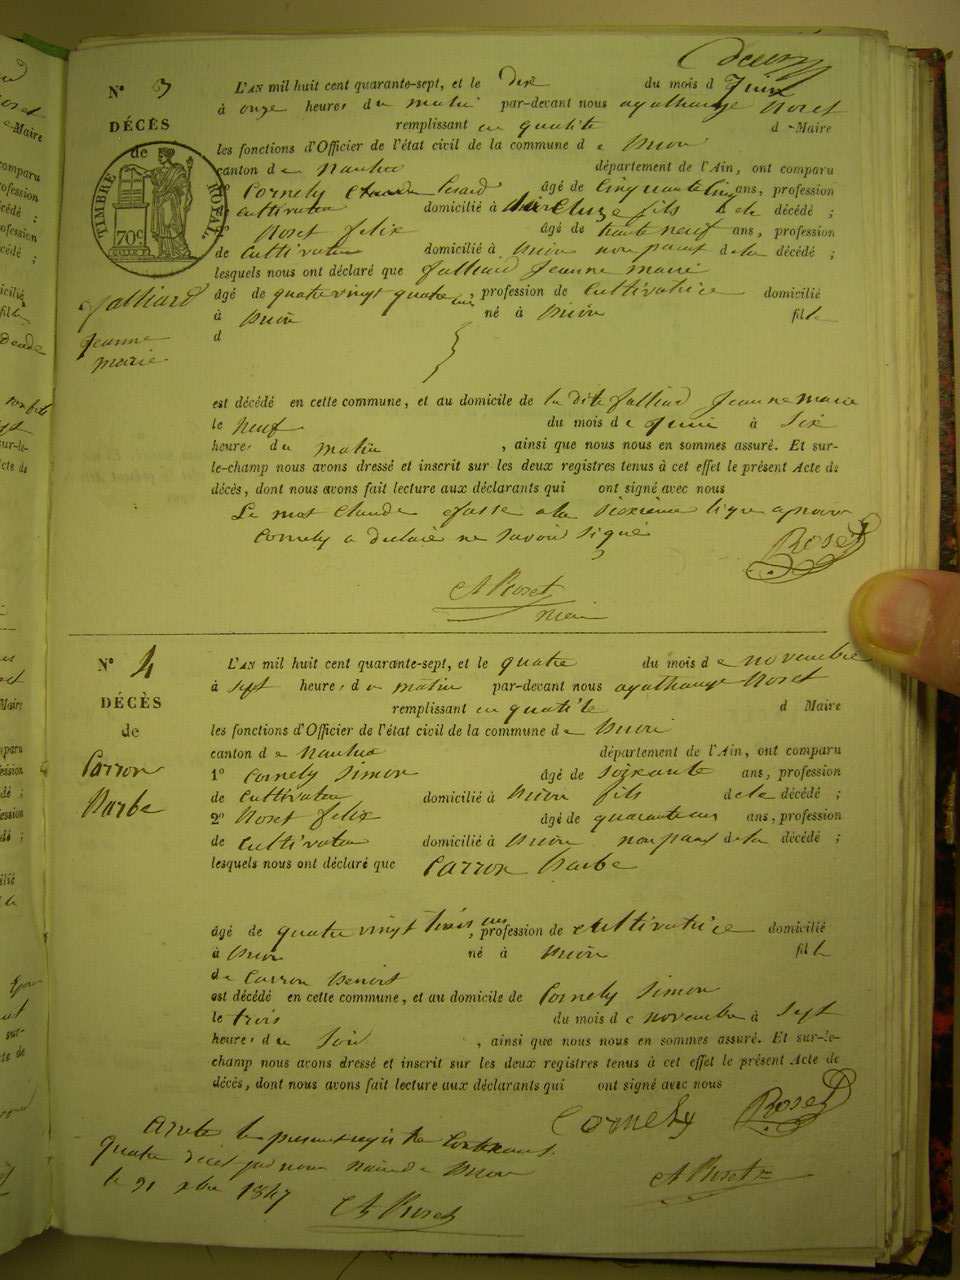 N° 3
DÉCÈS
de
TIMBRE ROYAL.
70c
Jalliard
Jeanne
marie
deux
L'AN mil huit cent quarante-sept, et le dix du mois d Juin
à onze heures du matin par-devant nous agathange Roset
remplissant en qualité d Maire
les fonctions d'Officier de l'état civil de la commune de
canton de Nantua département de l'Ain, ont comparu
1° Cornely âgé de cinquante cinq ans, profession
de cultivateur domicilié à fils de la décédé ;
2° Roset felix âgé de trente neuf ans, profession
de cultivateur domicilié à non parent de la décédé ;
lesquels nous ont déclaré que Jalliard Jeanne marie
âgé de quatre vingt quatre ans, profession de cultivatrice domicilié
à né à fille
d
est décédé en cette commune, et au domicile de la dite Jalliard Jeanne marie
le neuf du mois de Juin à six
heures du matin , ainsi que nous nous en sommes assuré. Et sur-
le-champ nous avons dressé et inscrit sur les deux registres tenus à cet effet le présent Acte de
décès, dont nous avons fait lecture aux déclarants qui ont signé avec nous
Le mot Claude a la ligne
Cornely a declaré ne savoir signé
Roset
A Roset
maire
N° 4
DÉCÈS
de
Carron
Barbe
L'AN mil huit cent quarante-sept, et le quatre du mois de novembre
à sept heures du matin par-devant nous agathange Roset
remplissant en qualité d Maire
les fonctions d'Officier de l'état civil de la commune de
canton de Nantua département de l'Ain, ont comparu
1° Cornely Simon âgé de soixante ans, profession
de cultivateur domicilié à fils de la décédé ;
2° Roset felix âgé de quarante ans, profession
de cultivateur domicilié à non parent de la décédé ;
lesquels nous ont déclaré que Carron barbe
âgé de quatre vingt trois ans, profession de cultivatrice domicilié
à né à fille
de Carron Benoit
est décédé en cette commune, et au domicile de Cornely Simon
le trois du mois de novembre à sept
heures du soir , ainsi que nous nous en sommes assuré. Et sur-le-
champ nous avons dressé et inscrit sur les deux registres tenus à cet effet le présent Acte de
décès, dont nous avons fait lecture aux déclarants qui ont signé avec nous
Cornely Roset
Arrete le present registre contenant
quatre deces par nous maire de
le 31 xbre 1847
A Roset
A Roset